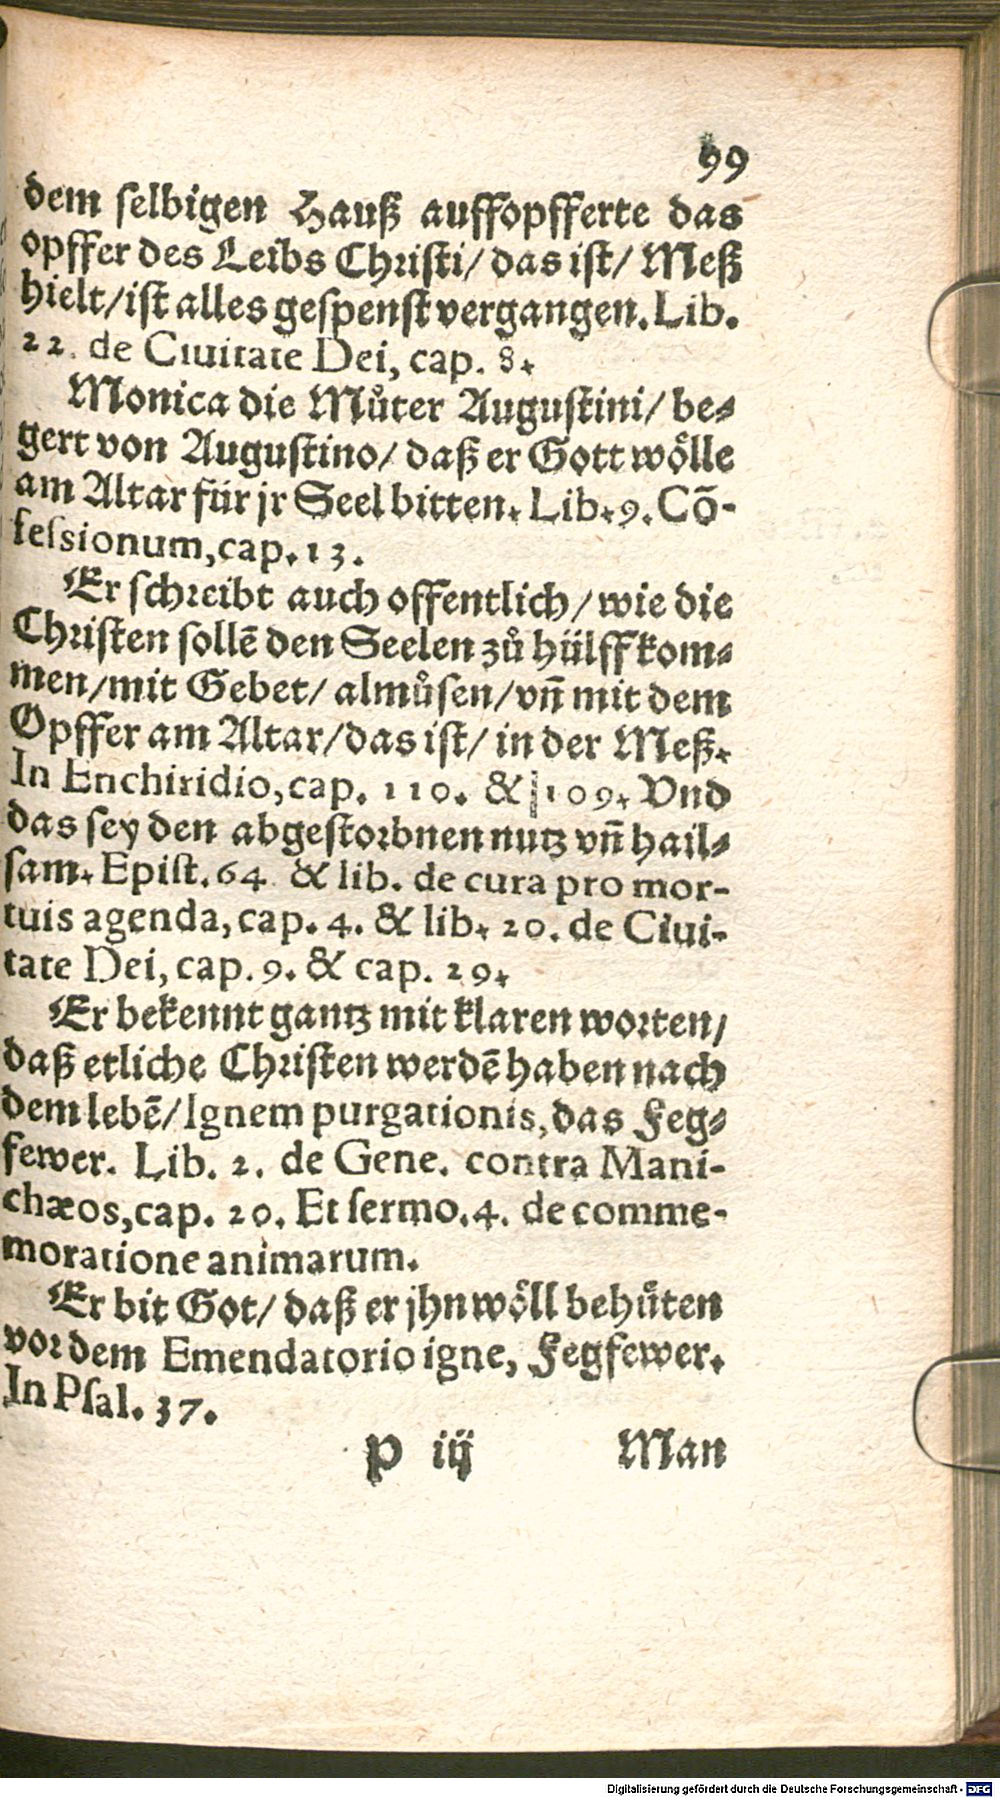 99
dem selbigen Hauß auffopfferte das
opffer des Leibs Christi/ das ist/ Meß
hielt/ist alles gespenst vergangen. Lib.
22. de Ciuitate Dei, cap. 8.
Monica die Můter Augustini/ be-
gert von Augustino/ daß er Gott wölle
am Altar für jr Seel bitten. Lib. 9. Cõ-
fessionum, cap. 13.
Er schreibt auch offentlich/ wie die
Christen sollē den Seelen zů hülff kom-
men/mit Gebet/ almůsen/vn̄ mit dem
Opffer am Altar/das ist/ in der Meß.
In Enchiridio, cap. 110. & 109. Vnd
das sey den abgestorbnen nutz vn̄ hail-
sam. Epist. 64 & lib. de cura pro mor-
tuis agenda, cap. 4. & lib. 20. de Ciui-
tate Dei, cap. 9. & cap. 29.
Er bekennt gantz mit klaren worten/
daß etliche Christen werdē haben nach
dem lebē/ Ignem purgationis, das Feg-
fewer. Lib. 2. de Gene. contra Mani-
chæos, cap. 20. Et sermo. 4. de comme-
moratione animarum.
Er bit Got/ daß er jhn wöll behüten
vor dem Emendatorio igne, Fegfewer.
In Psal. 37.
P iij Man
Digitalisierung gefördert durch die Deutsche Forschungsgemeinschaft - DFG